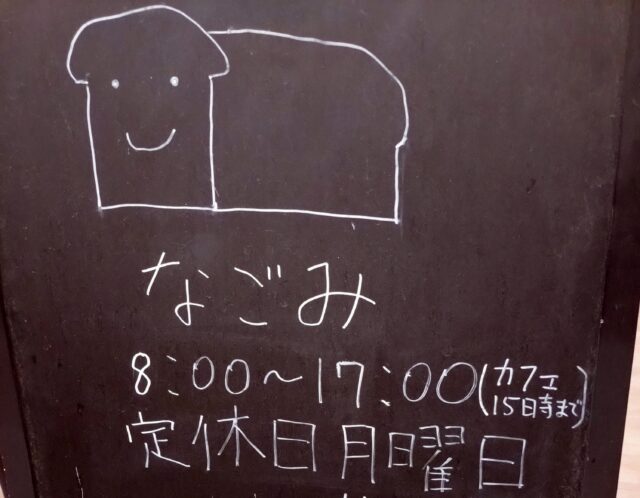 なごみ
8:00～17:00(カフェ
15時まで)
定休日月曜日